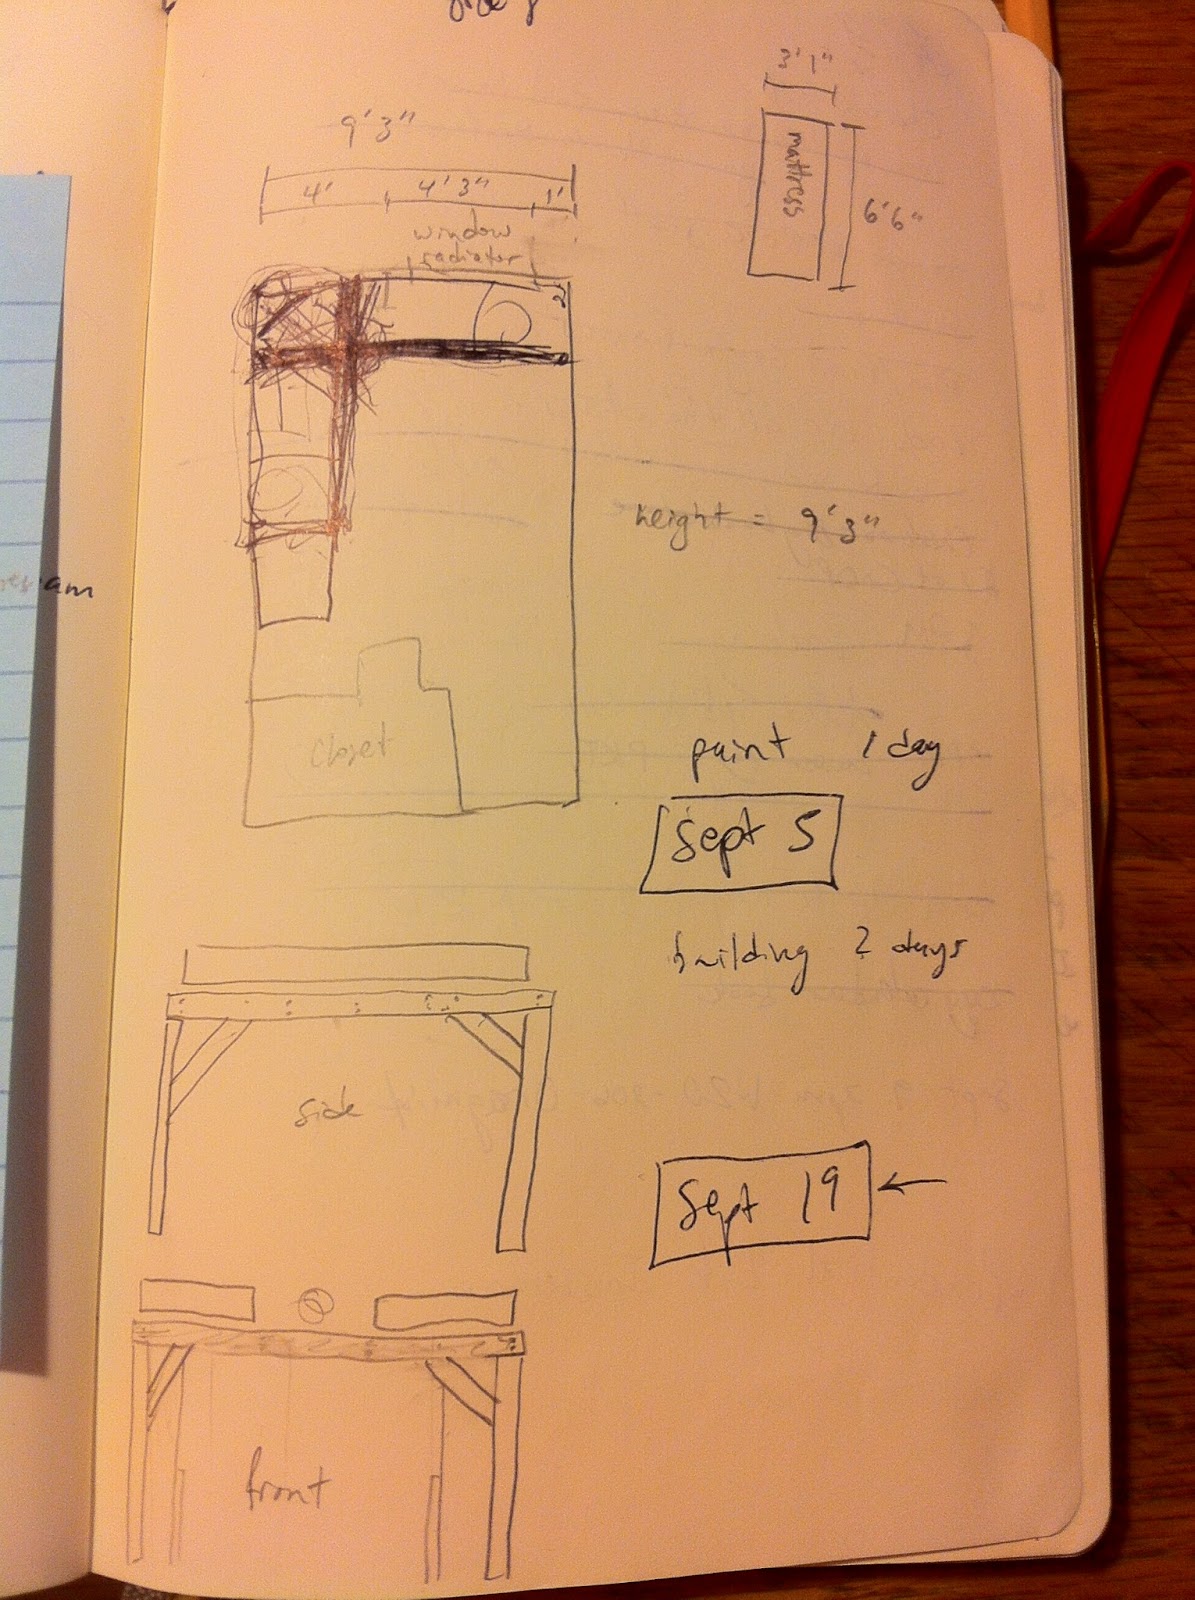 3'1"
9'3"
mattress
4' 4'3" 1'
6'6"
window
radiator
height = 9'3"
am
closet
paint 1 day
Sept 5
building 2 days
side
Sept 19
front